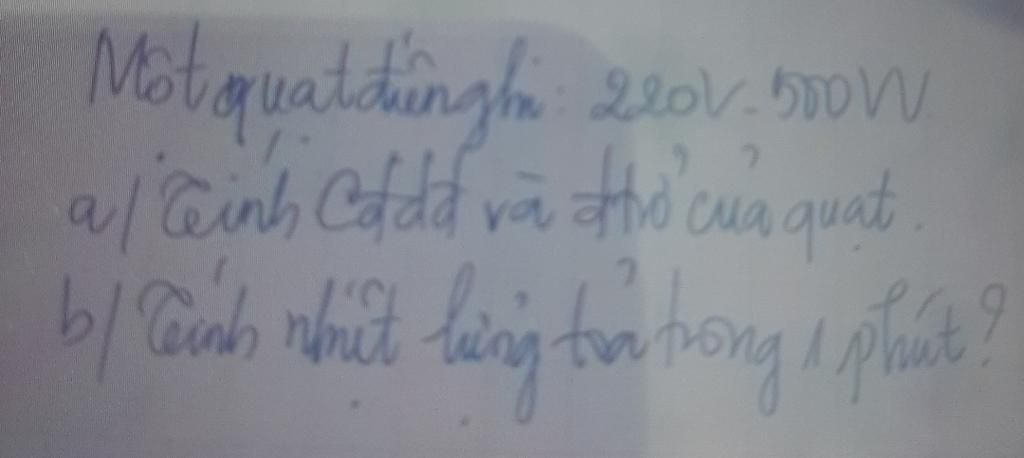 Một quạt đứng ghi: 220V - 500W
a/ Tính Cđdđ và đtrở của quạt.
b/ Tính nhiệt lượng tỏa trong 1 phút?